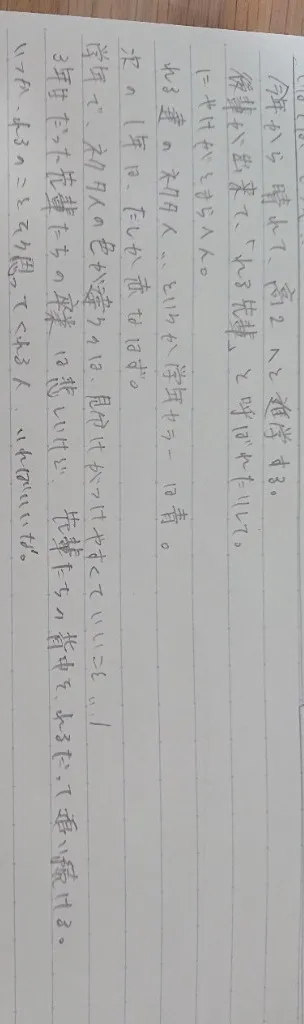 今年から晴れて、高2へと進学する。
後輩が出来て、「れる先輩」と呼ばれたりして。
にやけがとまらへん。
れる達のネクタイ…というか学年カラーは青。
次の1年は、たしか赤なはず。
学年で、ネクタイの色が違うのは、見分けがつけやすくていいこと…!
3年生だった先輩たちの卒業は悲しいけど、先輩たちの背中を、れるだって追い続ける。
いつか、れるのことそう思ってくれる人、いればいいな。